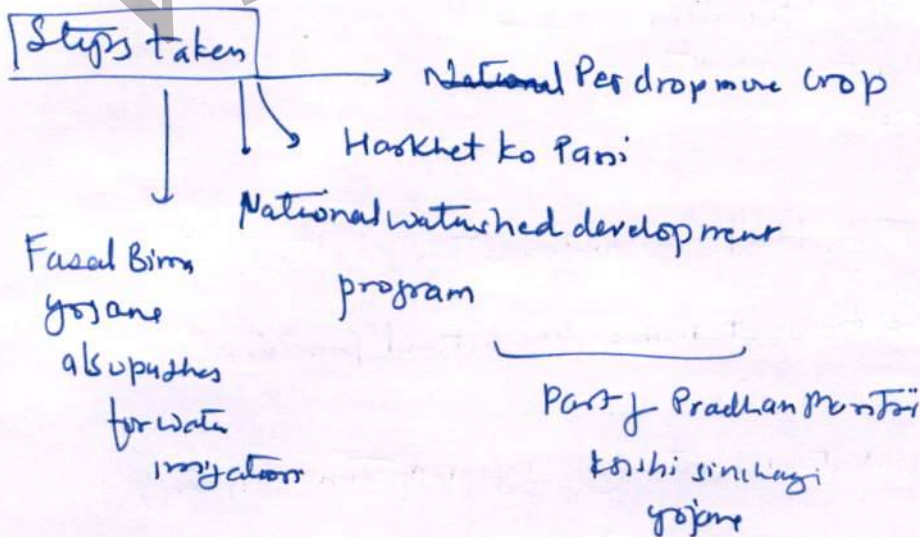 Steps taken
National Per drop more crop
Harkhet ko Pani
National watershed development
program
Fasal Bima
yojane
also pushes
for water
irrigation
Part of Pradhan Mantri
krishi sinchayi
yojane